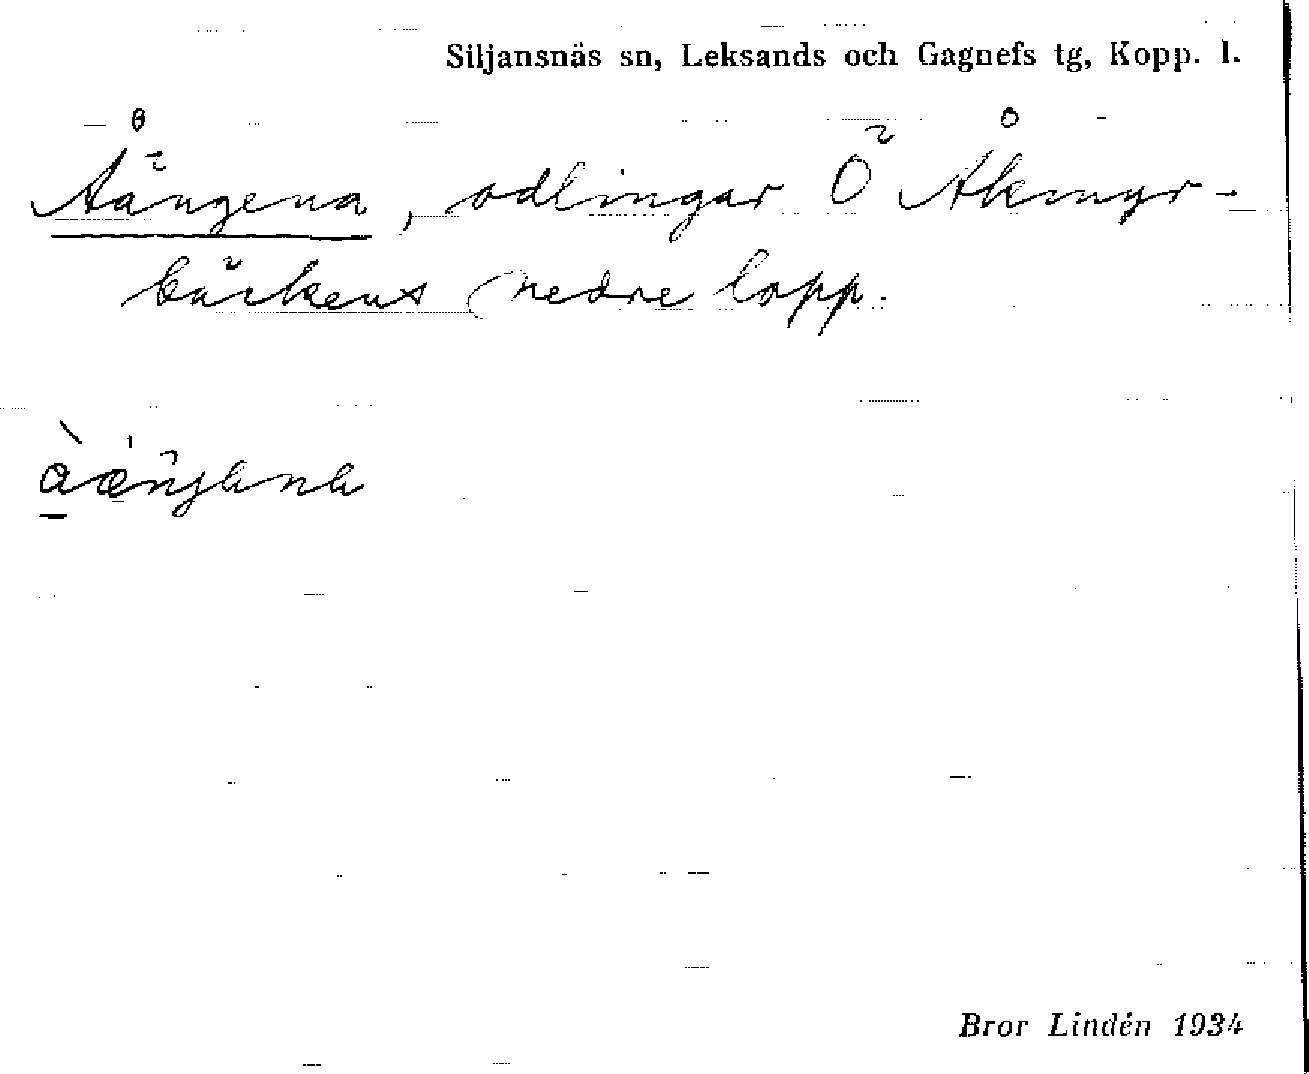 Siljansnäs sn, Leksands och Gagnefs tg, Kopp. l.
Åängena, odlingar Ö Åkmyr-
bäckens nedre lopp.
Bror Lindén 1934